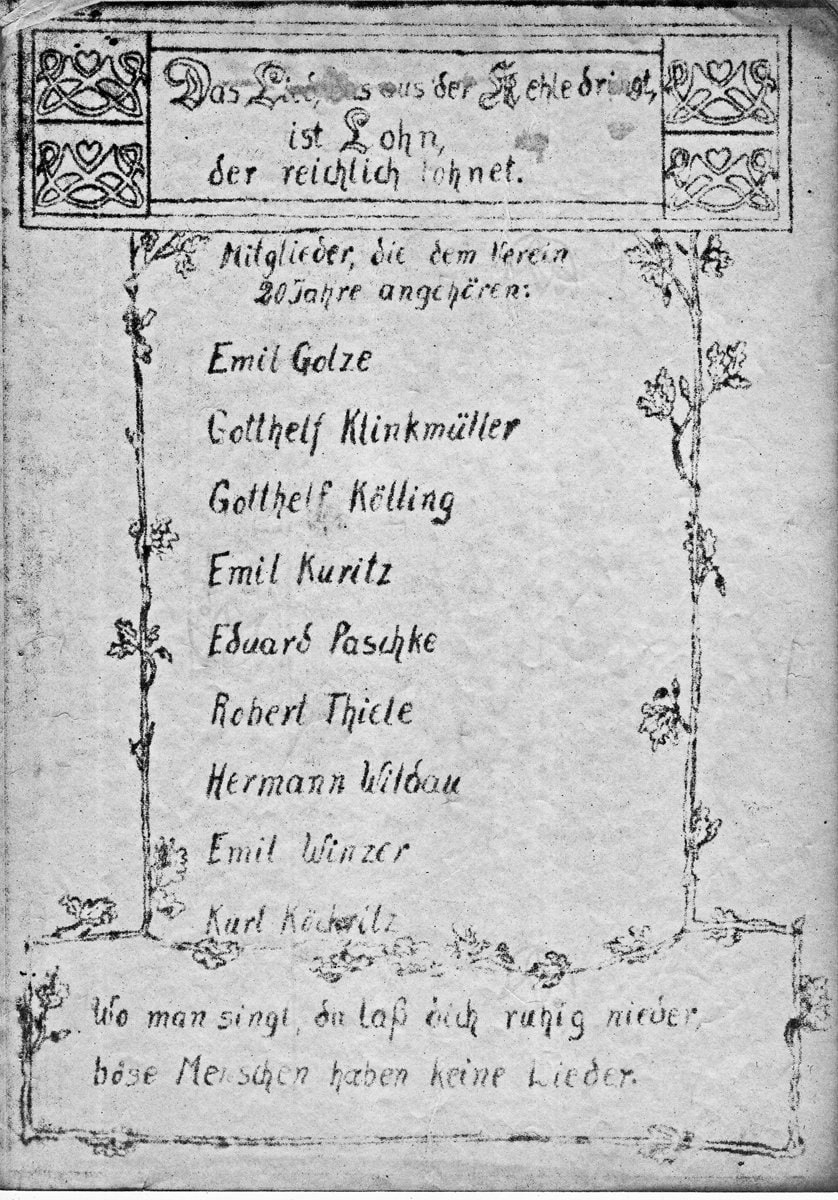 Das Lied, das aus der Kehle dringt,
ist Lohn,
der reichlich lohnet.
Mitglieder, die dem Verein
20 Jahre angehören:
Emil Golze
Gotthelf Klinkmüller
Gotthelf Kölling
Emil Kuritz
Eduard Paschke
Robert Thiele
Hermann Wildau
Emil Winzer
Karl Köckritz
Wo man singt, da laß dich ruhig nieder,
böse Menschen haben keine Lieder.